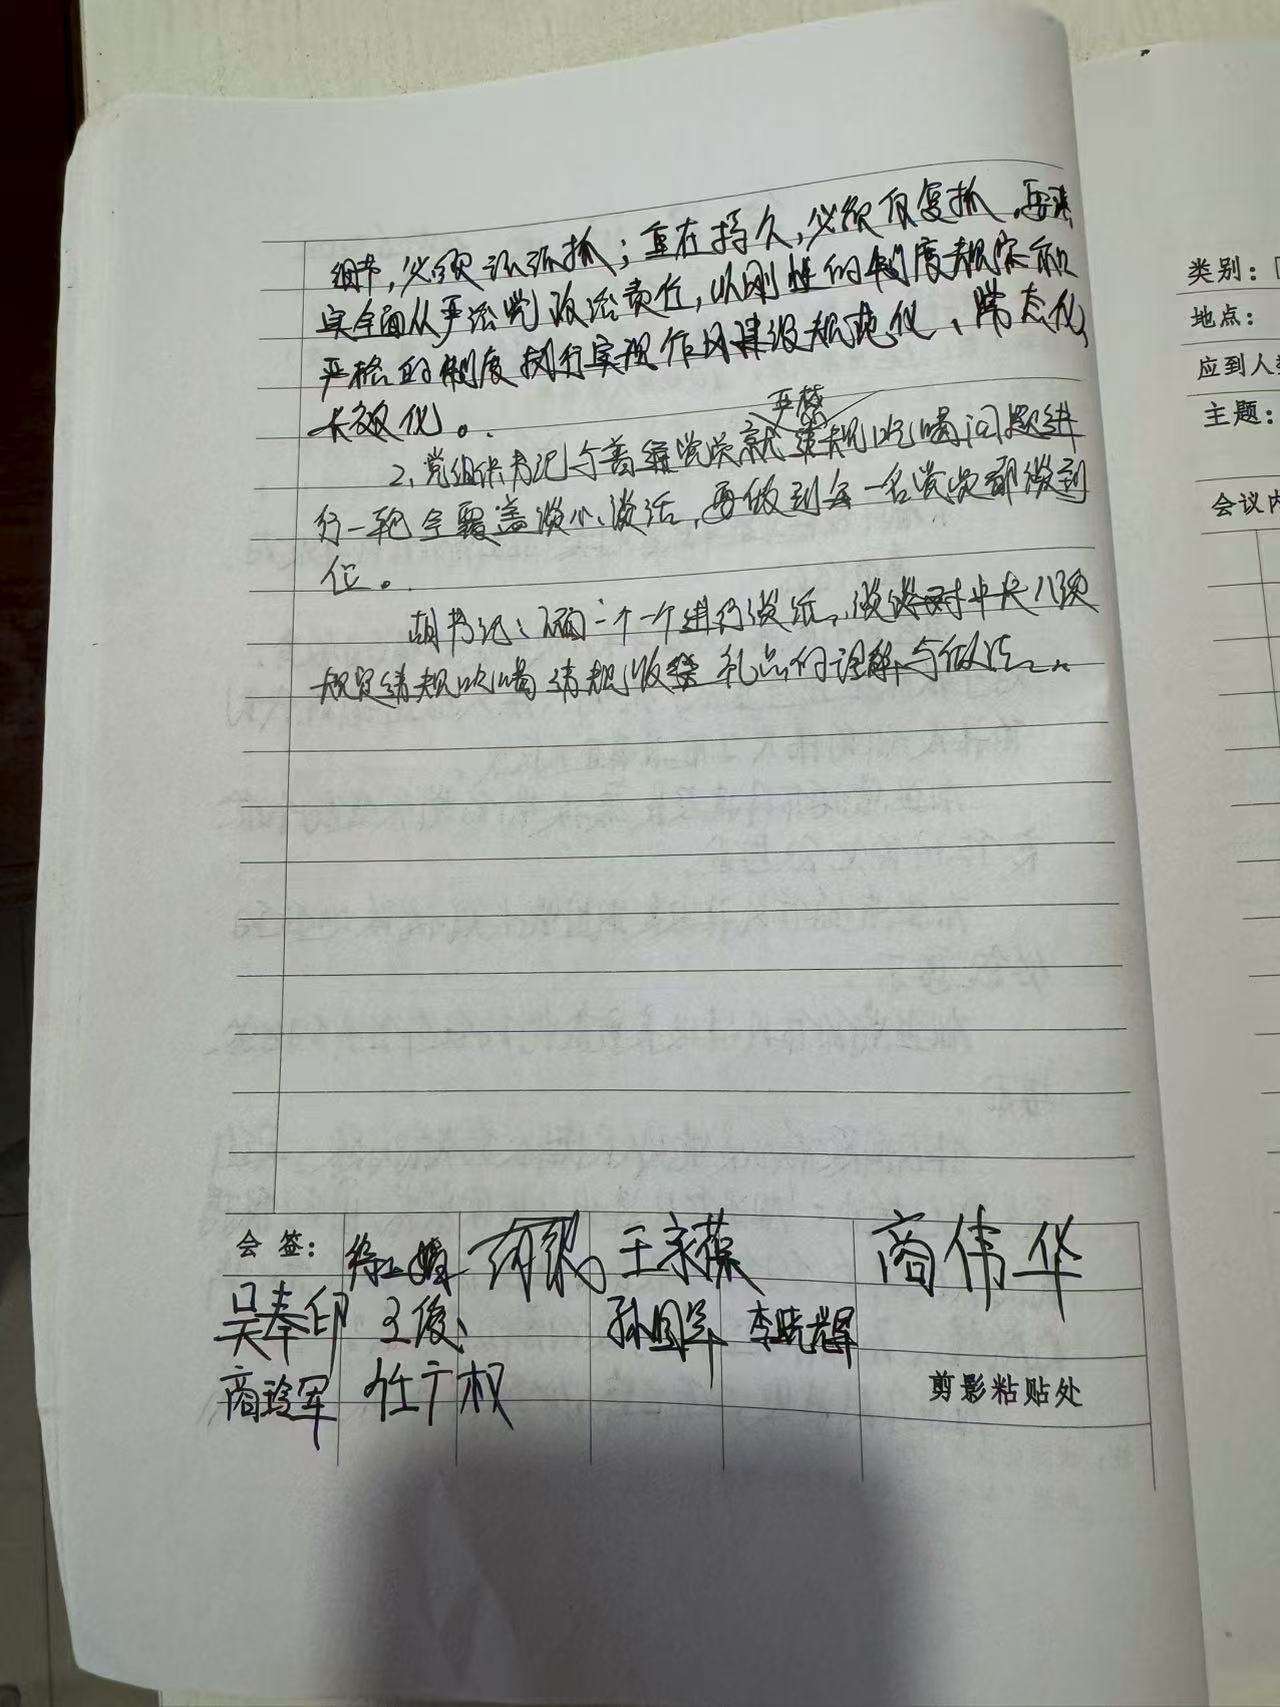 细节，必须认认真抓；重在持久，必须反复抓，要落
实全面从严治党政治责任，以刚性的制度规定和
严格的制度执行实现作风建设规范化、常态化、
长效化。
严禁
2、党组织书记与普通党员就违规吃喝问题进
行一轮全覆盖谈心、谈话，要做到每一名党员都谈到
位。
胡书记：一个一个进行谈话，谈谈对中央八项
规定违规吃喝违规收受礼品的理解与做法。
会签：
王家葆
商伟华
吴奉印
王俊
孙国军
李晓辉
商玲军
任广权
剪影粘贴处
类别：
地点：
应到人
主题：
会议内